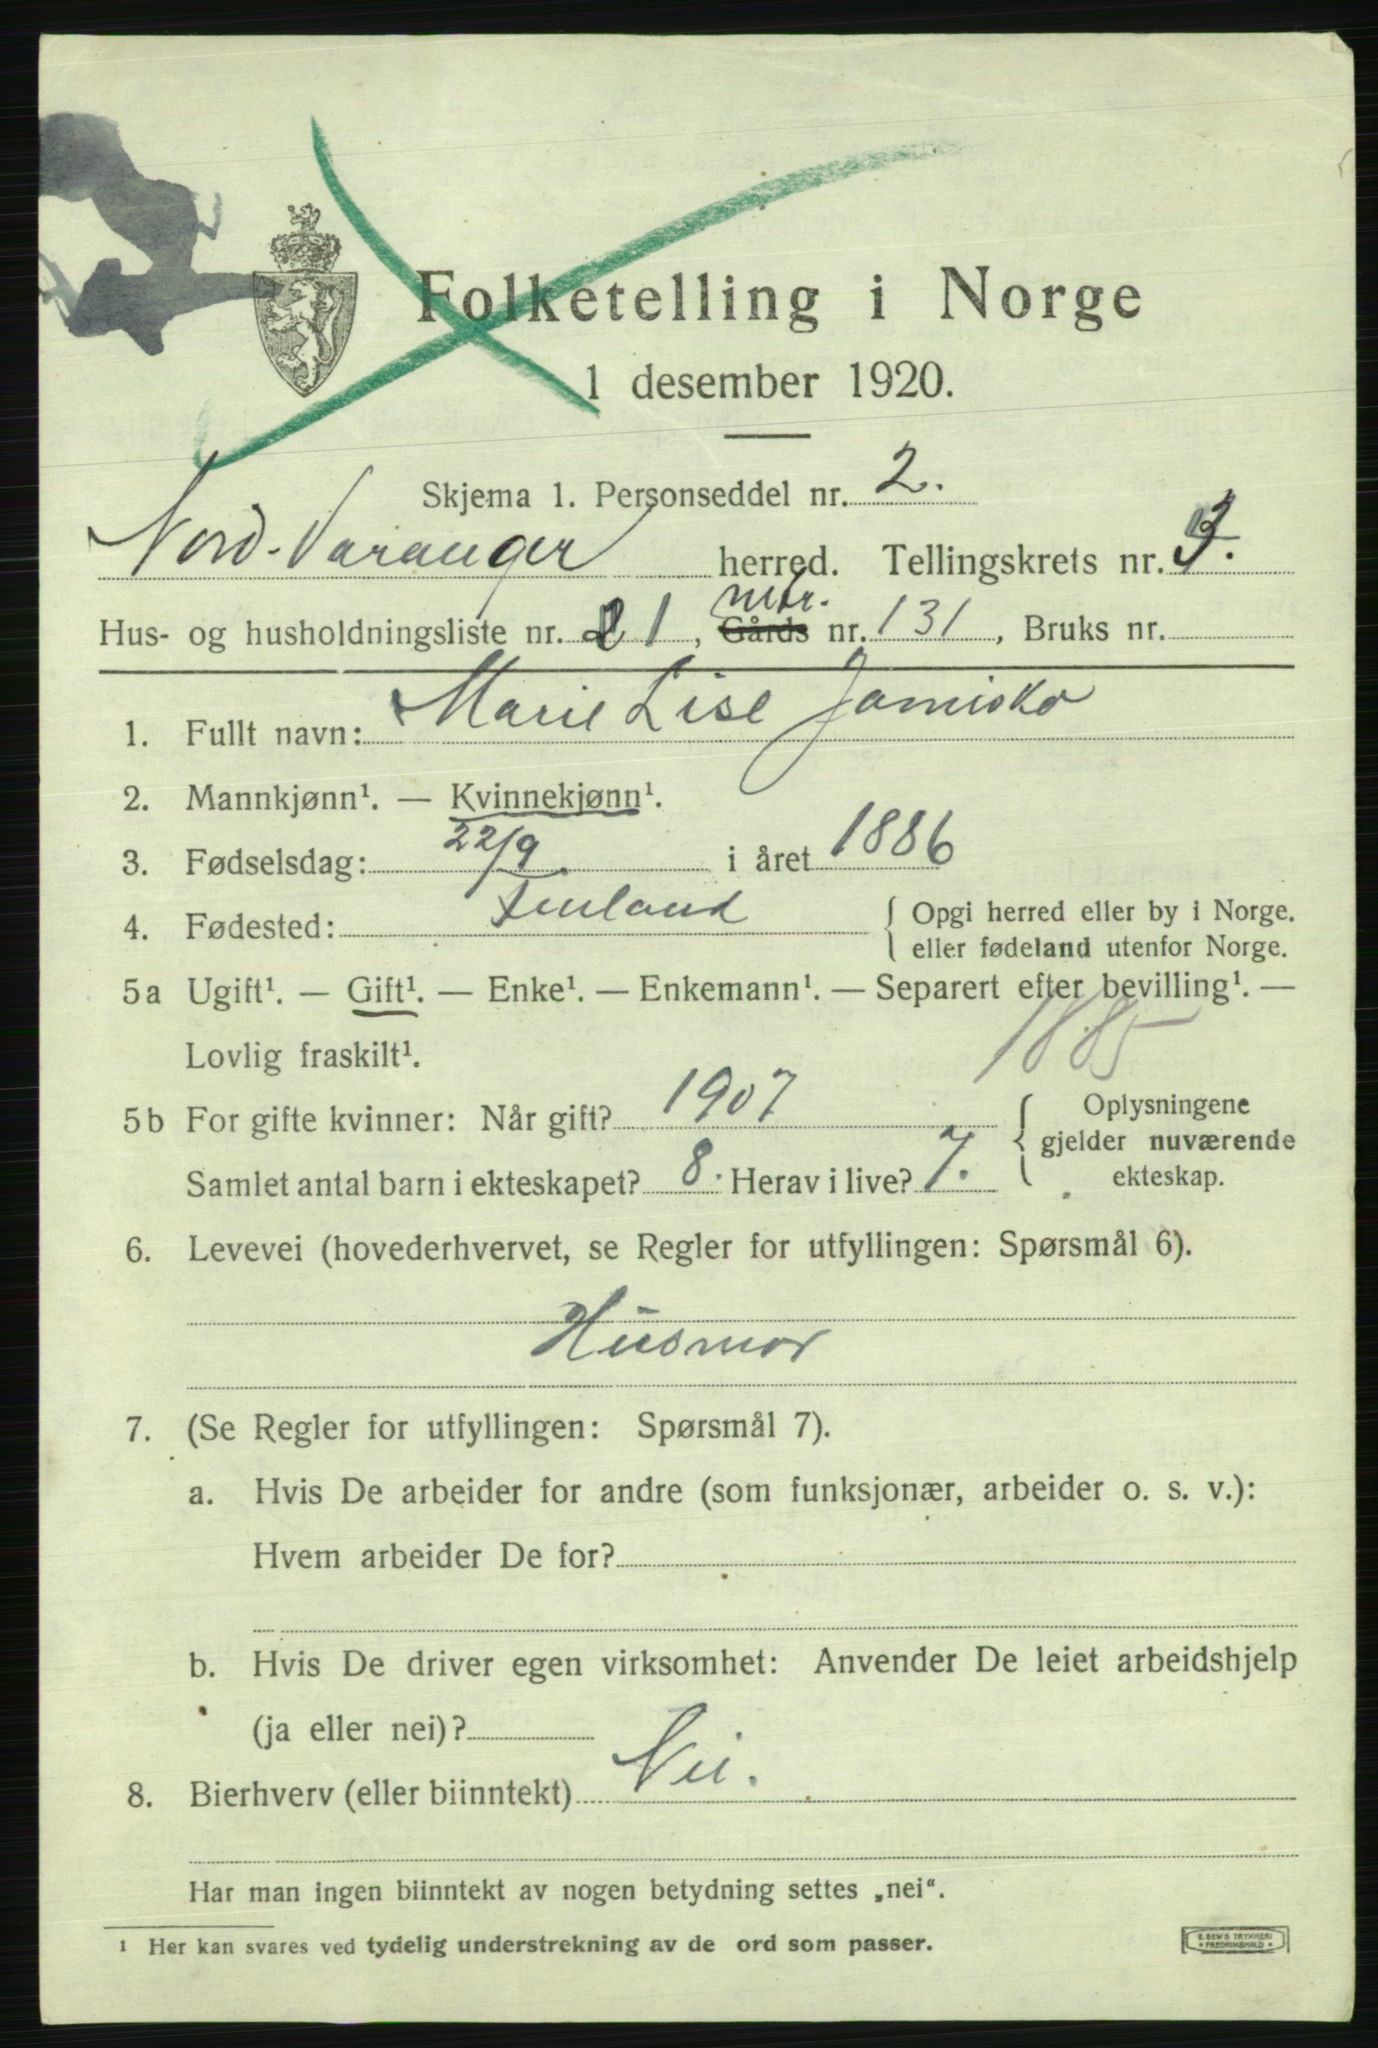 Folketelling i Norge
1 desember 1920.
Skjema 1. Personseddel nr. 2.
Nord-Varanger herred. Tellingskrets nr. 3.
mtr.
Hus- og husholdningsliste nr. 21, Gårds nr. 131, Bruks nr.
1. Fullt navn: Marie Lise Jamisko
2. Mannkjønn¹. — Kvinnekjønn¹.
3. Fødselsdag: 22/9. i året 1886
4. Fødested: Finland { Opgi herred eller by i Norge.
eller fødeland utenfor Norge.
5a Ugift¹. — Gift¹. — Enke¹. — Enkemann¹. — Separert efter bevilling¹. —
Lovlig fraskilt¹. 1885
5b For gifte kvinner: Når gift? 1907 { Oplysningene
gjelder nuværende
Samlet antal barn i ekteskapet? 8. Herav i live? 7. ekteskap.
6. Levevei (hovederhvervet, se Regler for utfyllingen: Spørsmål 6).
Husmor
7. (Se Regler for utfyllingen: Spørsmål 7).
a. Hvis De arbeider for andre (som funksjonær, arbeider o. s. v.):
Hvem arbeider De for?
b. Hvis De driver egen virksomhet: Anvender De leiet arbeidshjelp
(ja eller nei)?
8. Bierhverv (eller biinntekt) Nei.
Har man ingen biinntekt av nogen betydning settes „nei“.
¹ Her kan svares ved tydelig understrekning av de ord som passer.
E. SEM'S TRYKKERI
FREDRIKSHALD